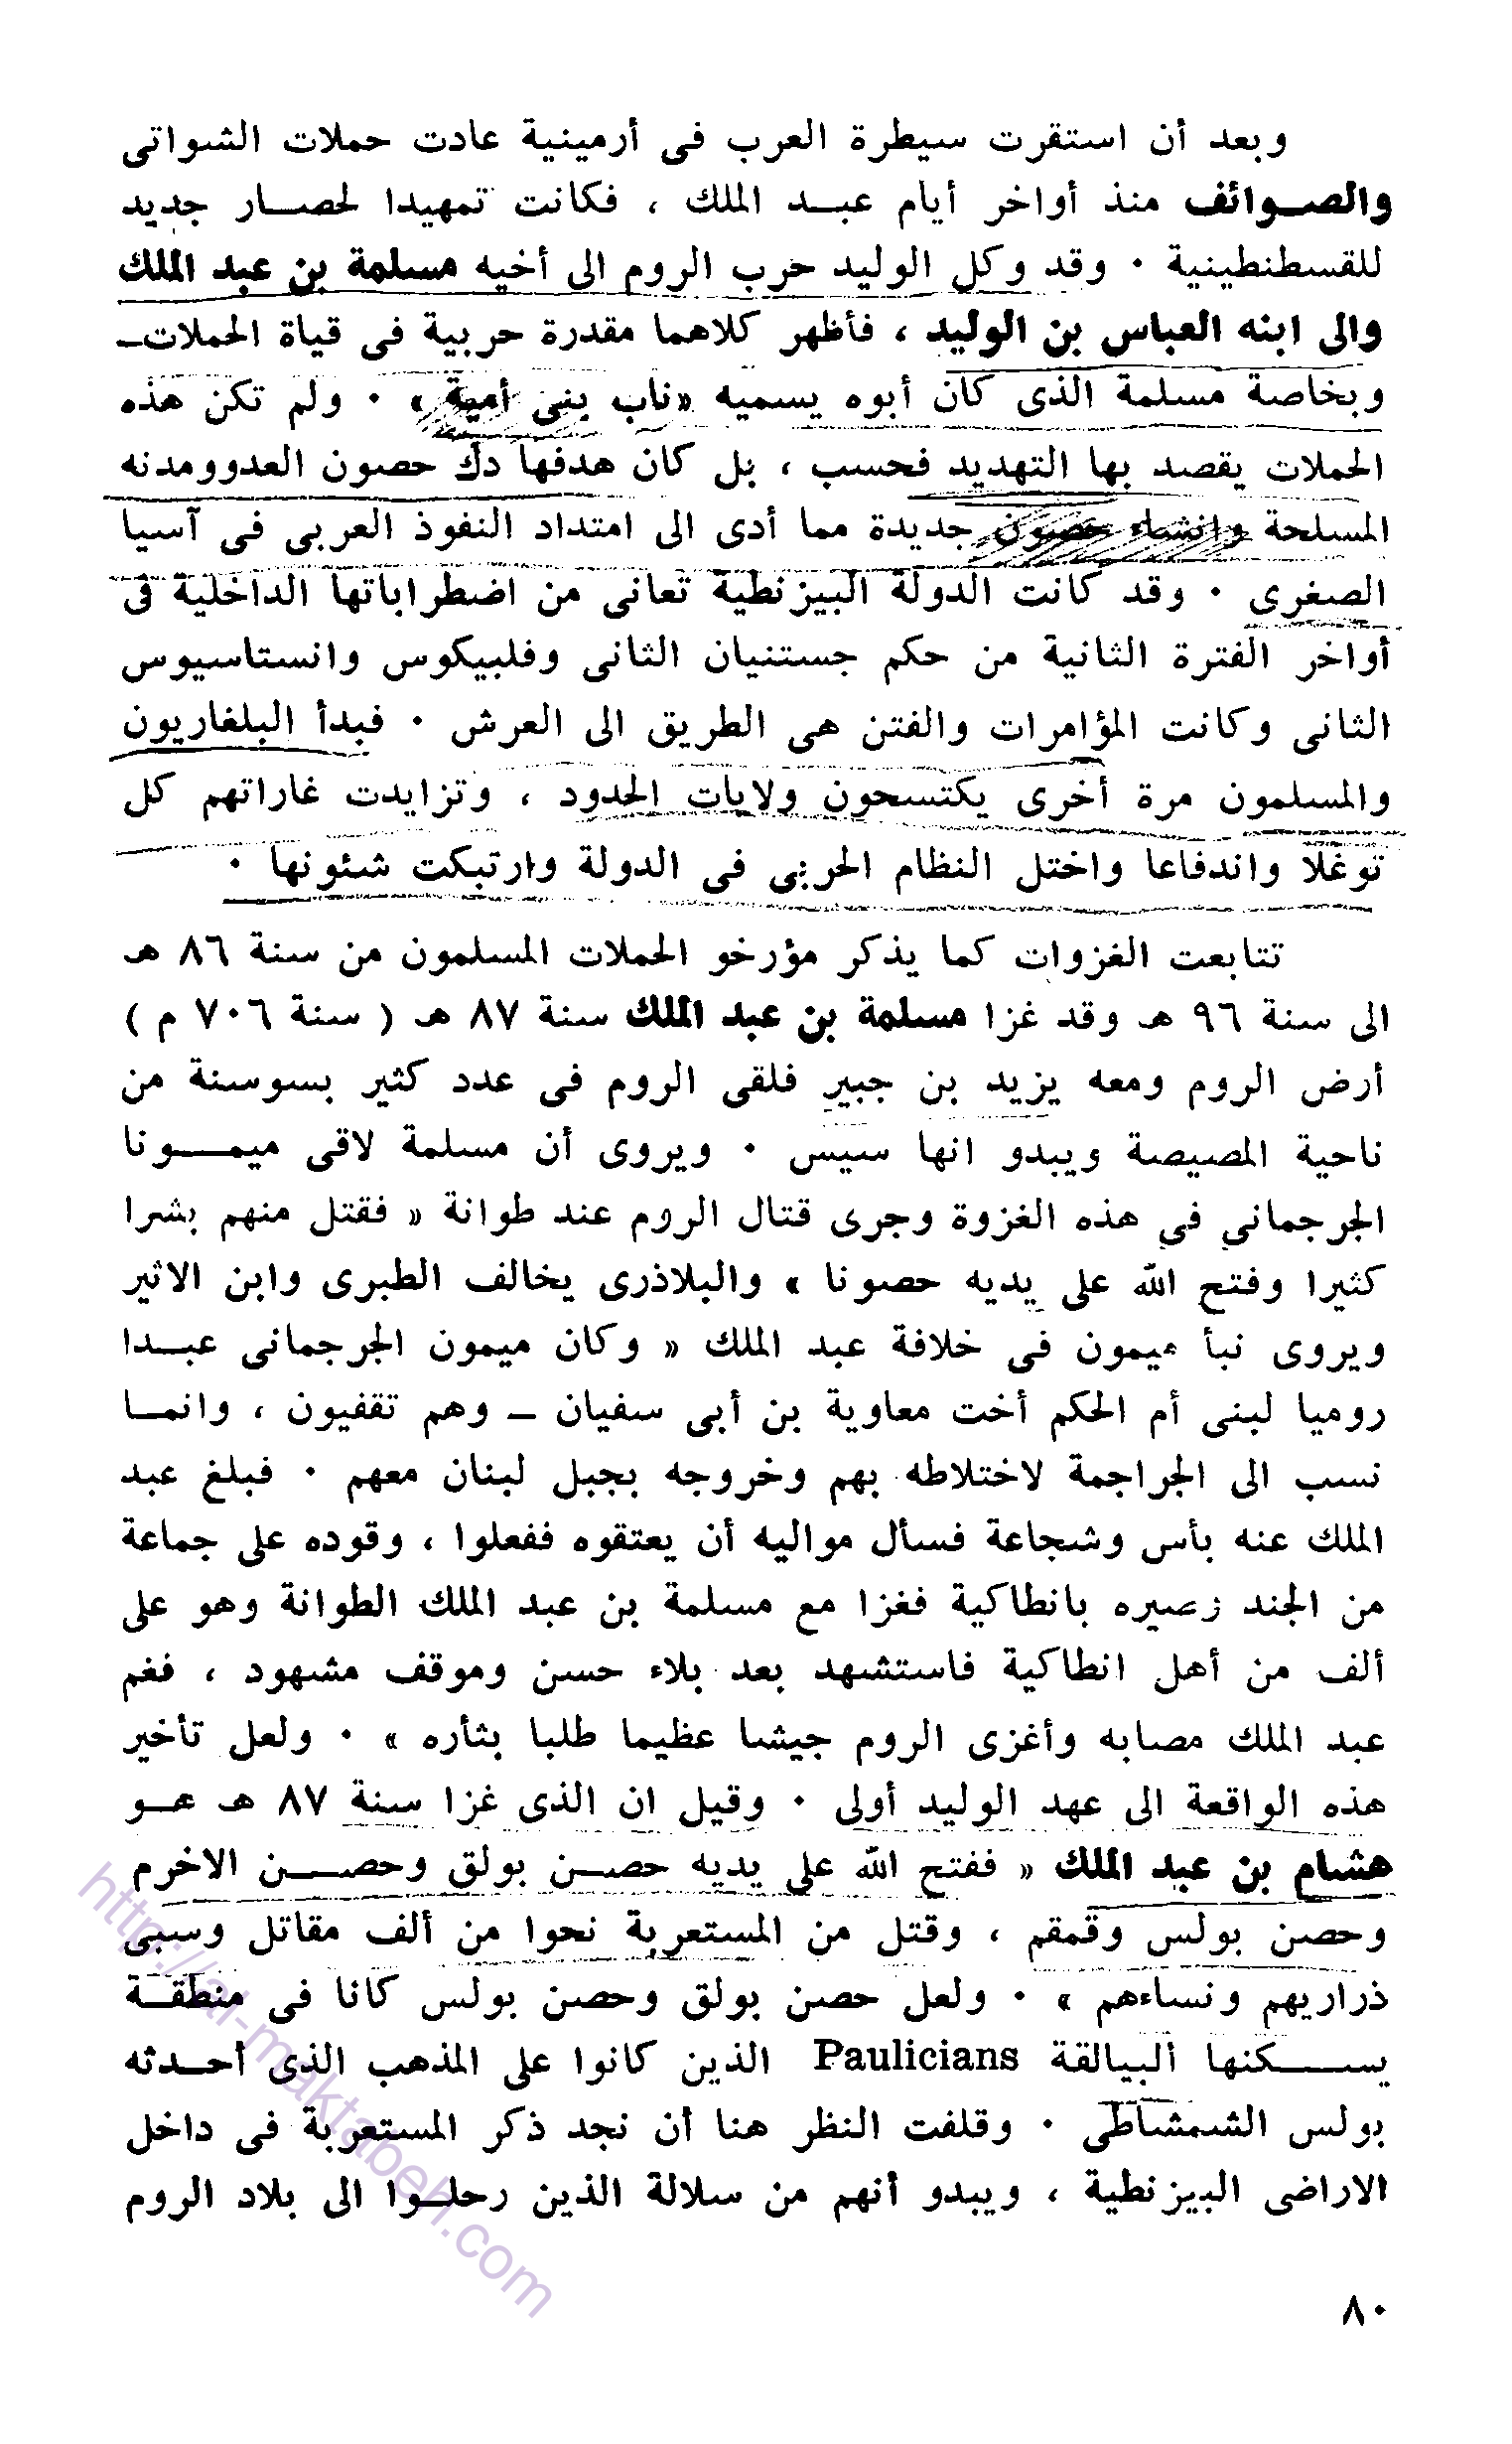 وبعد أن استقرت سيطرة العرب فى أرمينية عادت حملات الشواتى
والصوائف منذ أواخر أيام عبد الملك ، فكانت تمهيدا لحصار جديد
للقسطنطينية ٠ وقد وكل الوليد حرب الروم الى أخيه مسلمة بن عبد الملك
والى ابنه العباس بن الوليد ، فأظهر كلاهما مقدرة حربية فى قياة الحملات ــ
وبخاصة مسلمة الذى كان أبوه يسميه «ناب بنى أمية » ٠ ولم تكن هذه
الحملات يقصد بها التهديد فحسب ، بل كان هدفها دك حصون العدوومدنه
المسلحة وانشاء حصون جديدة مما أدى الى امتداد النفوذ العربى فى آسيا
الصغرى ٠ وقد كانت الدولة البيزنطية تعانى من اضطراباتها الداخلية فى
أواخر الفترة الثانية من حكم جستنيان الثانى وفلبيكوس وانستاسيوس
الثانى وكانت المؤامرات والفتن هى الطريق الى العرش ٠ فبدأ البلغاريون
والمسلمون مرة أخرى يكتسحون ولايات الحدود ، وتزايدت غاراتهم كل
توغلا واندفاعا واختل النظام الحربى فى الدولة وارتبكت شئونها ٠
تتابعت الغزوات كما يذكر مؤرخو الحملات المسلمون من سنة ٨٦ هـ
الى سنة ٩٦ هـ وقد غزا مسلمة بن عبد الملك سنة ٨٧ هـ ( سنة ٧٠٦ م )
أرض الروم ومعه يزيد بن جبير فلقى الروم فى عدد كثير بسوسنة من
ناحية المصيصة ويبدو انها سيس ٠ ويروى أن مسلمة لاقى ميمونا
الجرجمانى فى هذه الغزوة وجرى قتال الروم عند طوانة « فقتل منهم بشرا
كثيرا وفتح الله على يديه حصونا » والبلاذرى يخالف الطبرى وابن الاثير
ويروى نبأ ميمون فى خلافة عبد الملك « وكان ميمون الجرجمانى عبدا
روميا لبنى أم الحكم أخت معاوية بن أبى سفيان ــ وهم تقفيون ، وانما
نسب الى الجراجمة لاختلاطه بهم وخروجه بجبل لبنان معهم ٠ فبلغ عبد
الملك عنه بأس وشجاعة فسأل مواليه أن يعتقوه ففعلوا ، وقوده على جماعة
من الجند وصيره بانطاكية فغزا مع مسلمة بن عبد الملك الطوانة وهو على
ألف من أهل انطاكية فاستشهد بعد بلاء حسن وموقف مشهود ، فغم
عبد الملك مصابه وأغزى الروم جيشا عظيما طلبا بثأره » ٠ ولعل تأخير
هذه الواقعة الى عهد الوليد أولى ٠ وقيل ان الذى غزا سنة ٨٧ هـ هو
هشام بن عبد الملك « ففتح الله على يديه حصن بولق وحصن الاخرم
وحصن بولس وقمقم ، وقتل من المستعربة نحوا من ألف مقاتل وسبى
ذراريهم ونساءهم » ٠ ولعل حصن بولق وحصن بولس كانا فى منطقة
يسكنها البيالقة Paulicians الذين كانوا على المذهب الذى أحدثه
بولس الشمشاطى ٠ وقلفت النظر هنا أن نجد ذكر المستعربة فى داخل
الاراضى البيزنطية ، ويبدو أنهم من سلالة الذين رحلوا الى بلاد الروم
٨٠
http://al-maktabeh.com